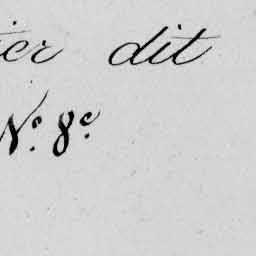 ier dit
N.° 8.e